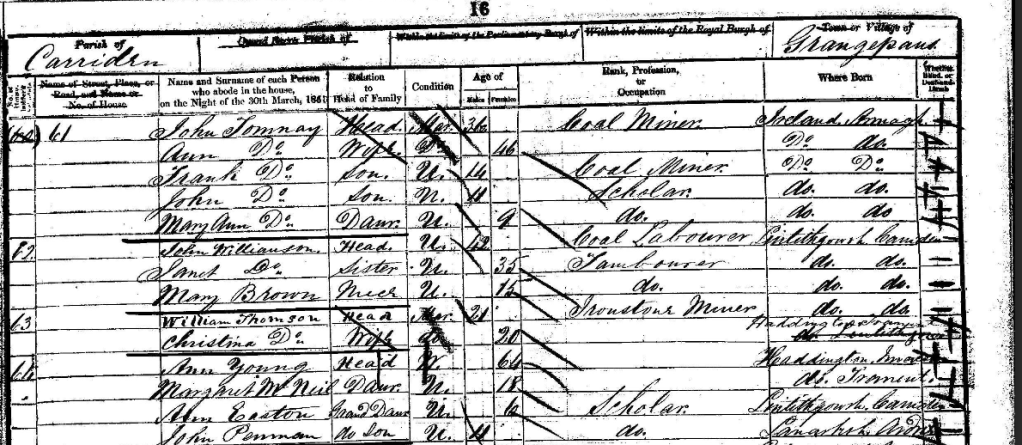 16
Parish of Carriden
Quoad Sacra Parish of
Within the limits of the Parliamentary Burgh of
Within the limits of the Royal Burgh of
Town or Village of Grangepans
Name of Street, Place, or Road, and Name or No. of House
Name and Surname of each Person who abode in the house, on the Night of the 30th March, 1851
Relation to Head of Family
Condition
Age of Males Females
Rank, Profession, or Occupation
Where Born
Whether Blind, or Deaf-and-Dumb
61 John Tonnay Head Mar. 36 Coal Miner Ireland Armagh
Ann Do Wife 46 Do do.
Frank Do Son. U. 14 Coal Miner Do Do
John Do Son. U. 11 Scholar do. do
Mary Ann Do Daur. U. 9 do. do. do
62 John Williamson Head U. 42 Coal Labourer Linlithgowsh. Carriden
Janet Do Sister U. 35 Tambourer do. do.
Mary Brown Niece U. 15 do. do. do.
63 William Thomson Head Mar. 21 Ironstone Miner
Christina Do Wife do 20
64 Ann Young Head W. 64 Haddington
Margaret McNeil Daur. U. 18 do. Tranent
Ann Easton Grand Daur U. 6 Scholar Linlithgowsh. Carriden
John Penman do Son U. 11 do. Lanarksh.